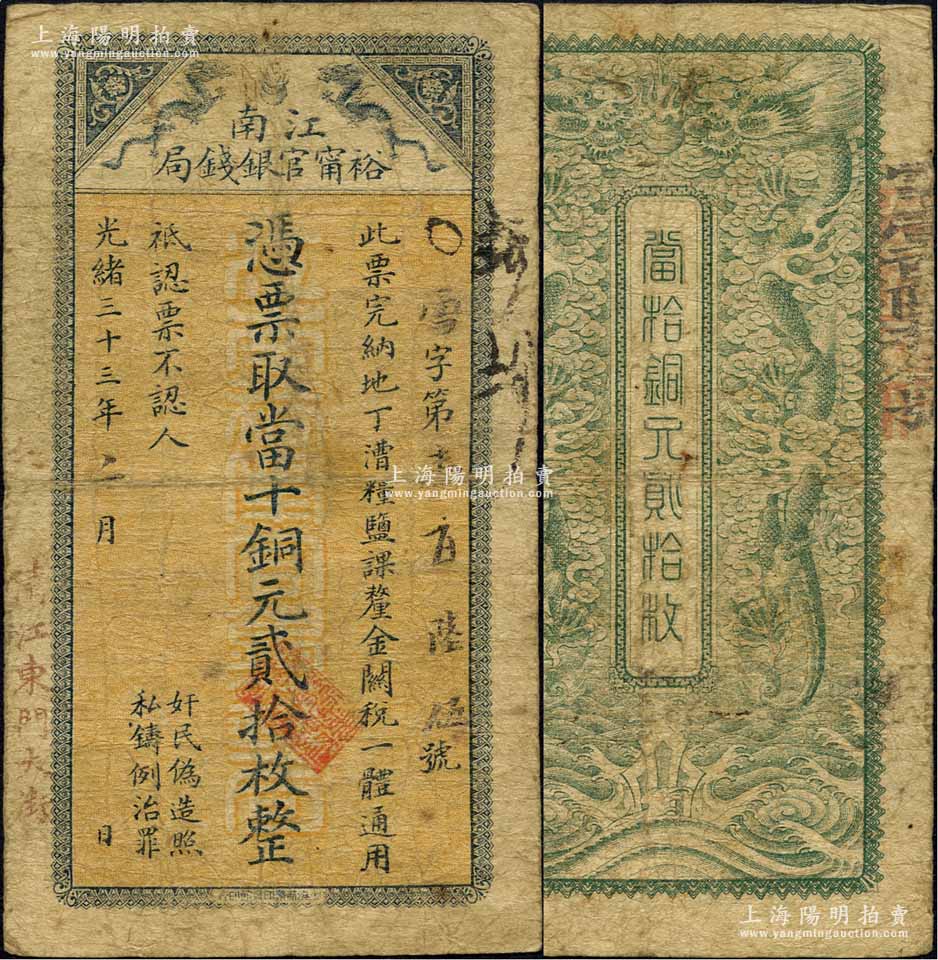 上海陽明拍賣
www.yangmingauction.com
江南
裕甯官銀錢局
字第
五
陸
號
此票完納地丁漕糧鹽課釐金關稅一體通用
憑票取當十銅元貳拾枚整
祇認票不認人
奸民僞造照
私鑄例治罪
光緒三十三年二月 日
江東門大街
當拾銅元貳拾枚
上海陽明拍賣
www.yangmingauction.com
上海陽明拍賣
www.yangmingauction.com